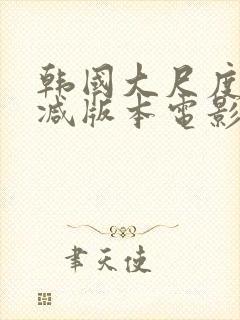 韩国大尺度
减版本电影
聿天使